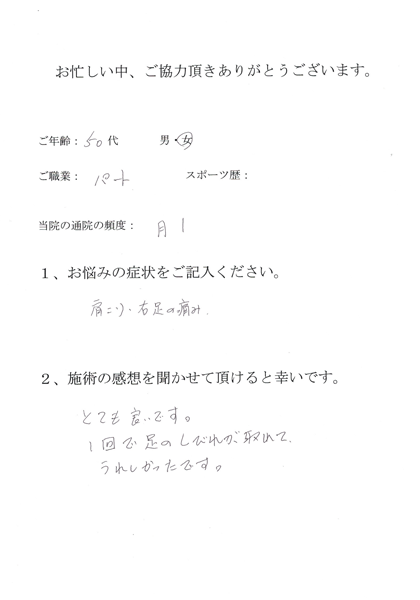 お忙しい中、ご協力頂きありがとうございます。
ご年齢：50代　男・女
ご職業：パート　スポーツ歴：
当院の通院の頻度：月1
1、お悩みの症状をご記入ください。
肩こり・右足の痛み.
2、施術の感想を聞かせて頂けると幸いです。
とても良いです。
1回で足のしびれが取れて、
うれしかったです。